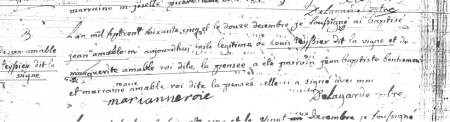 marraine m joselle
Delagarde ptre
B
jean amable
teyssier dit la
vigne
L'an mil sept cent soixante cinq et le douze decembre je soussigné ai baptisé
jean amable né aujourdhui fils legitime de Louis teissier dit la vigne et de
marguerite amable roi dite la pensée a ete parrain jean baptiste
et marraine marie amable roi dite la pensée celle ci a signé avec moi
marianneroie Delagarde ptre.
et le vingt decembre je soussigné